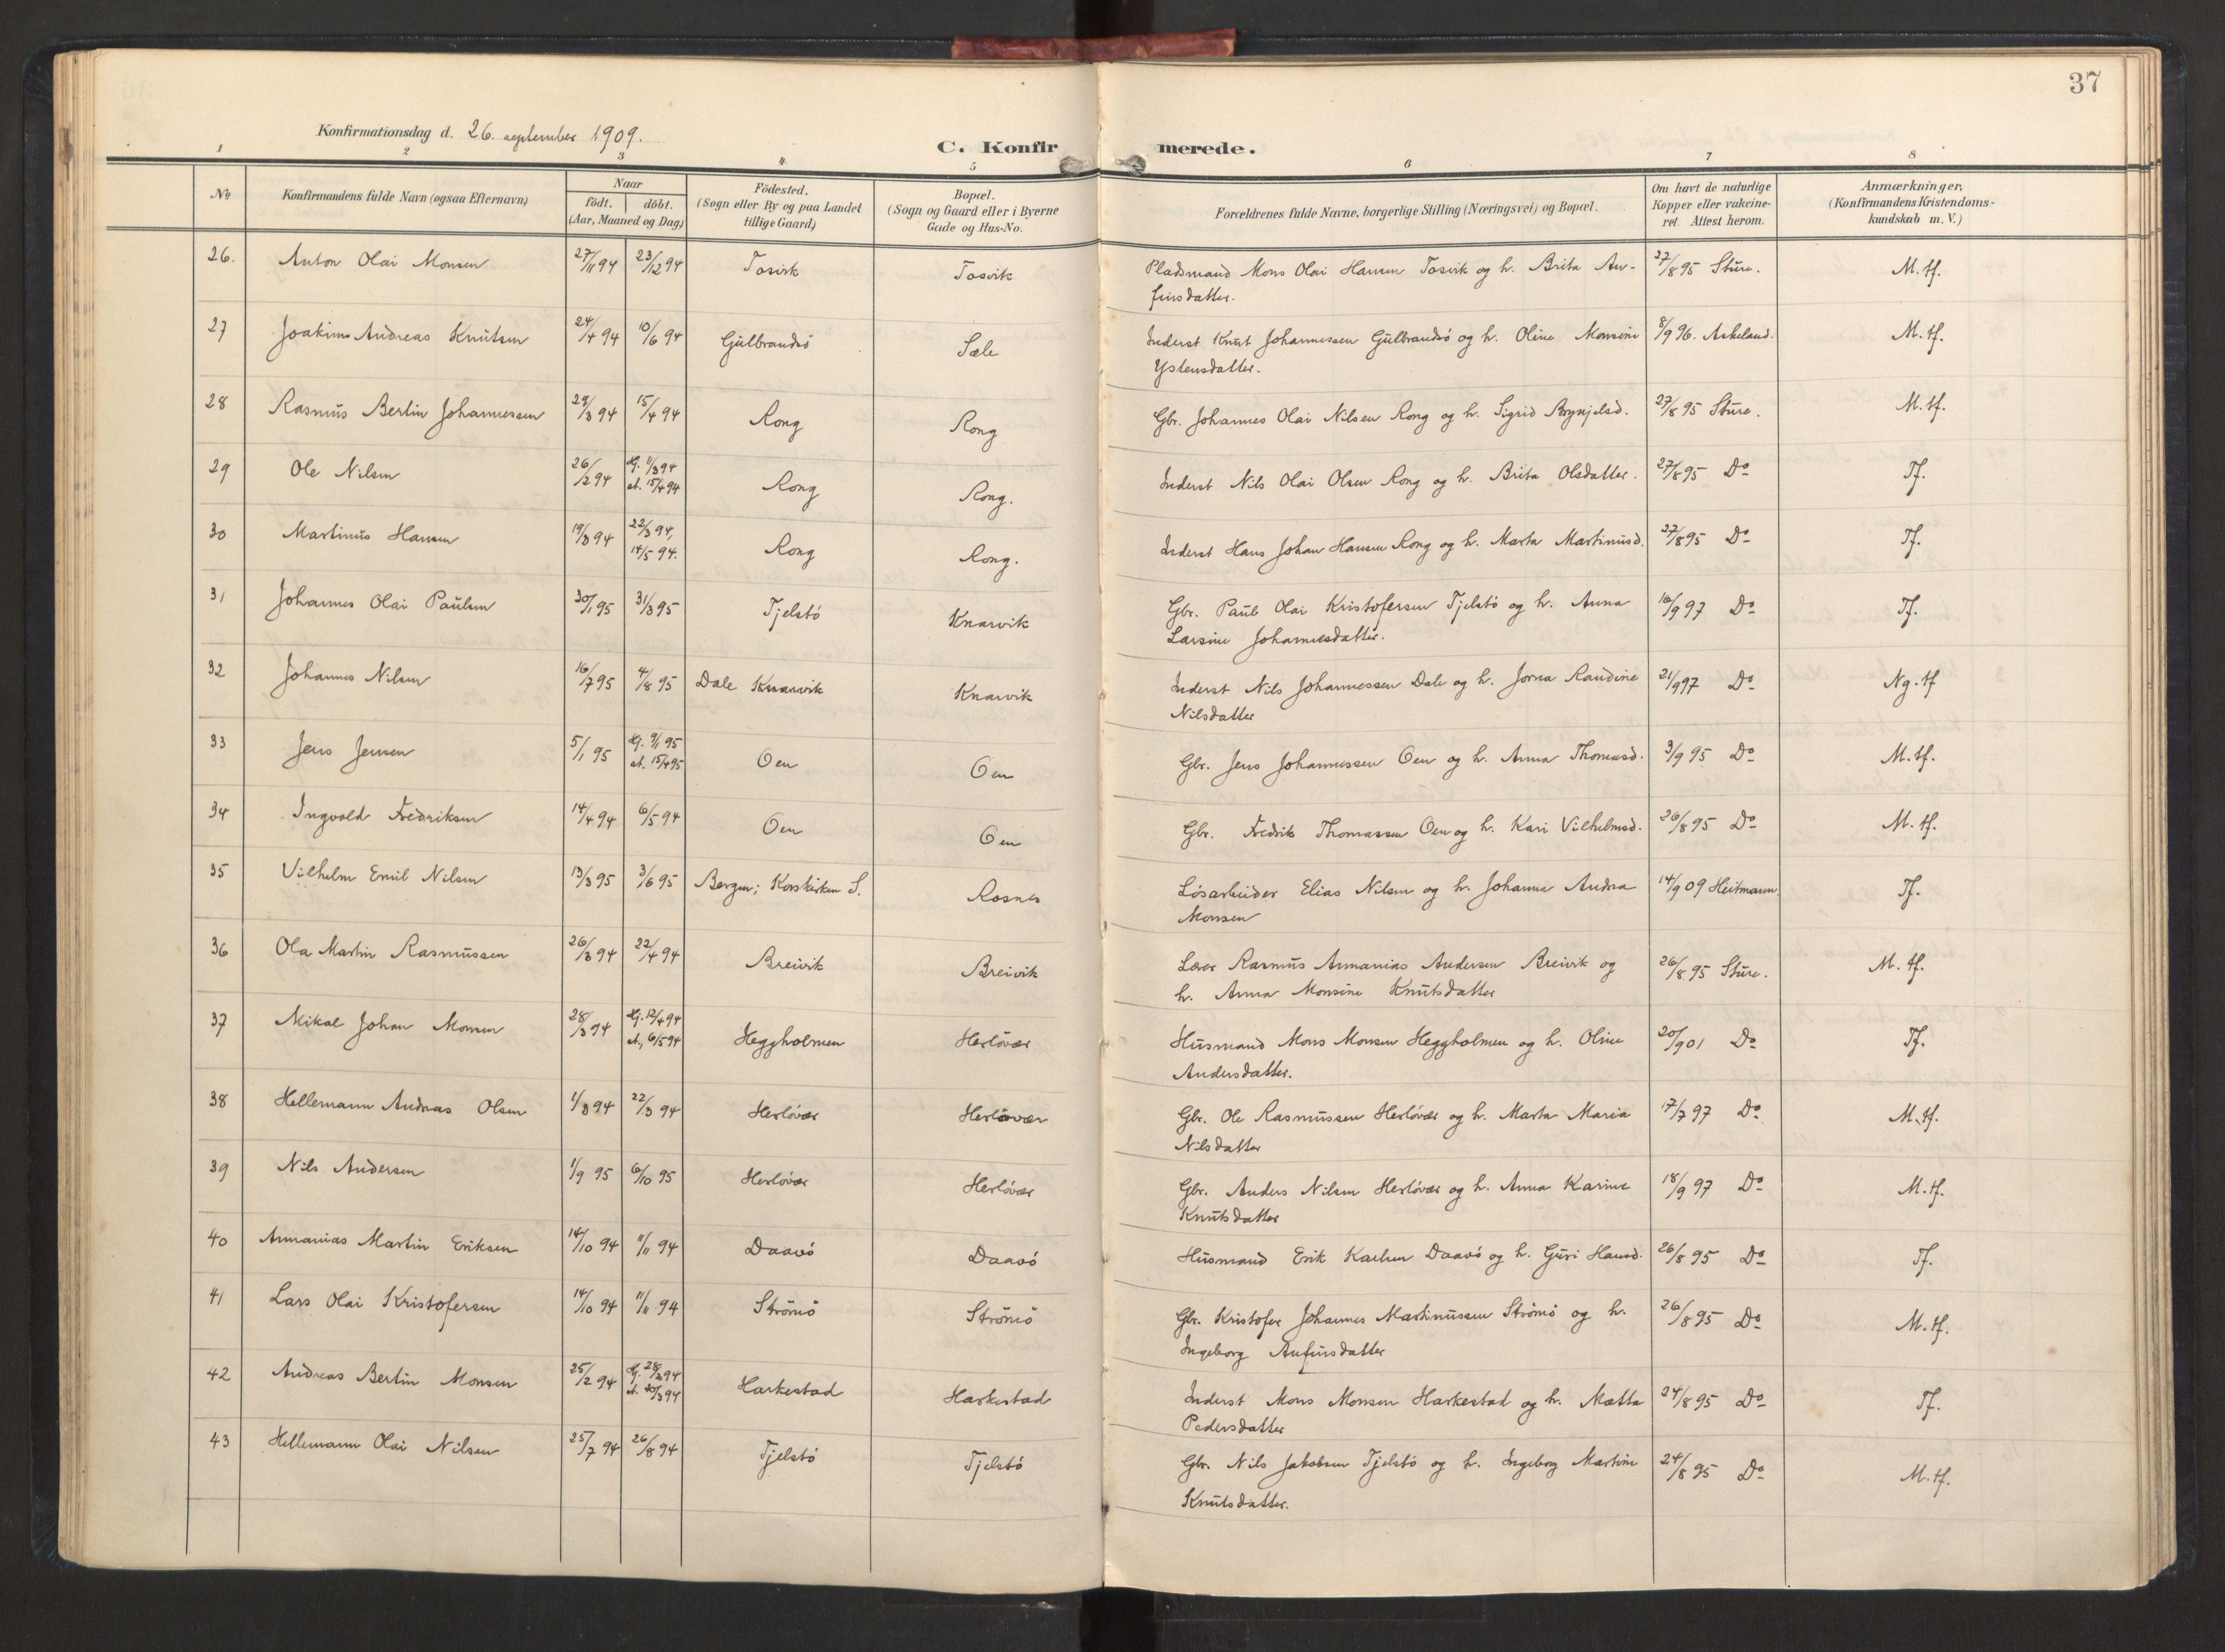 37
Konfirmationsdag d. 26. september 1909.
C. Konfirmerede.
1 2 3 4 5 6 7 8
No
Konfirmandens fulde Navn (ogsaa Efternavn)
Naar
födt. döbt.
(Aar, Maaned og Dag)
Födested.
(Sogn eller By og paa Landet
tillige Gaard)
Bopæl.
(Sogn og Gaard eller i Byerne
Gade og Hus-No.
Forældrenes fulde Navne, borgerlige Stilling (Næringsvei) og Bopæl.
Om havt de naturlige
Kopper eller vakcine-
ret. Attest herom.
Anmærkninger.
(Konfirmandens Kristendoms-
kundskab m. V.)
26. Anton Olai Monsen 27/11 94 23/12 94 Tosvik Tosvik Pladsmand Mons Olai Hansen Tosvik og h. Brita An- 27/8 95 Sture. M. tf.
finsdatter.
27 Joakim Andreas Knutsen 24/4 94 10/6 94 Gulbrandsö Sæle Inderst Knut Johannessen Gulbrandsö og h. Oline Monsine 8/9 96. Askeland. M. tf.
Ystensdatter.
28 Rasmus Bertin Johannessen 29/3 94 15/4 94 Rong Rong Gbr. Johannes Olai Nilsen Rong og h. Sigrid Brynjelsd. 27/8 95 Sture. M. tf.
29 Ole Nilsen 26/2 94 Hj. 11/3 94 Rong Rong. Inderst Nils Olai Olsen Rong og h. Brita Olsdatter. 27/8 95 Do Tf.
st. 15/4 94
30 Martinus Hansen 19/3 94 22/3 94, Rong Rong. Inderst Hans Johan Hansen Rong og h. Marta Martinusd. 27/8 95 Do Tf.
14/5 94.
31 Johannes Olai Paulsen 30/1 95 31/3 95 Tjelstö Knarvik Gbr. Paul Olai Kristofersen Tjelstö og h. Anna 16/9 97 Do Tf.
Larsine Johannesdatter.
32 Johannes Nilsen 16/7 95 4/8 95 Dale Knarvik Knarvik Inderst Nils Johannessen Dale og h. Jorna Randine 21/9 97 Do Ng. tf
Nilsdatter
33 Jens Jensen 5/1 95 Hj. 9/1 95 Oen Oen Gbr. Jens Johannessen Oen og h. Anna Thomasd. 3/9 95 Do M. tf.
st. 15/4 95
34 Ingvald Fredriksen 14/4 94 6/5 94 Oen Oen Gbr. Fredrik Thomassen Oen og h. Kari Vilhelmsd. 26/8 95 Do M. tf.
35 Vilhelm Emil Nilsen 13/3 95 3/6 95 Bergen; Korskirken S. Rosnes Lösarbeider Elias Nilsen og h. Johanna Andrea 14/9 09 Heitmann. Tf.
Monsen
36 Ola Martin Rasmussen 26/3 94 22/4 94 Breivik Breivik Lærer Rasmus Annanias Andersen Breivik og 26/8 95 Sture. M. tf.
h. Anna Monsine Knutsdatter
37 Mikal Johan Monsen 28/3 94 Hj. 12/4 94 Heggholmen Herlövær Husmand Mons Monsen Heggholmen og h. Oline 20/9 01 Do Tf.
st. 6/5 94 Andersdatter.
38 Hellemann Andreas Olsen 1/3 94 22/3 94 Herlövær Herlövær Gbr. Ole Rasmussen Herlövær og h. Marta Maria 17/7 97 Do M. tf.
Nilsdatter
39 Nils Andersen 1/9 95 6/10 95 Herlövær Herlövær Gbr. Anders Nilsen Herlövær og h. Anna Karine 18/9 97 Do M. tf.
Knutsdatter
40 Annanias Martin Eriksen 14/10 94 11/11 94 Daavö Daavö Husmand Erik Karlsen Daavö og h. Guri Hansd. 26/8 95 Do Tf.
41 Lars Olai Kristofersen 14/10 94 11/11 94 Strömö Strömö Gbr. Kristofer Johannes Martinussen Strömö og h. 26/8 95 Do M. tf.
Ingeborg Anfinsdatter
42 Andreas Bertin Monsen 25/2 94 Hj. 28/2 94 Harkestad Harkestad Inderst Mons Monsen Harkestad og h. Mætta 24/8 95 Do Tf.
st. /3 94 Pedersdatter
43 Hellemann Olai Nilsen 25/7 94 26/8 94 Tjelstö Tjelstö Gbr. Nils Jakobsen Tjelstö og h. Ingeborg Martine 24/8 95 Do M. tf.
Knutsdatter.